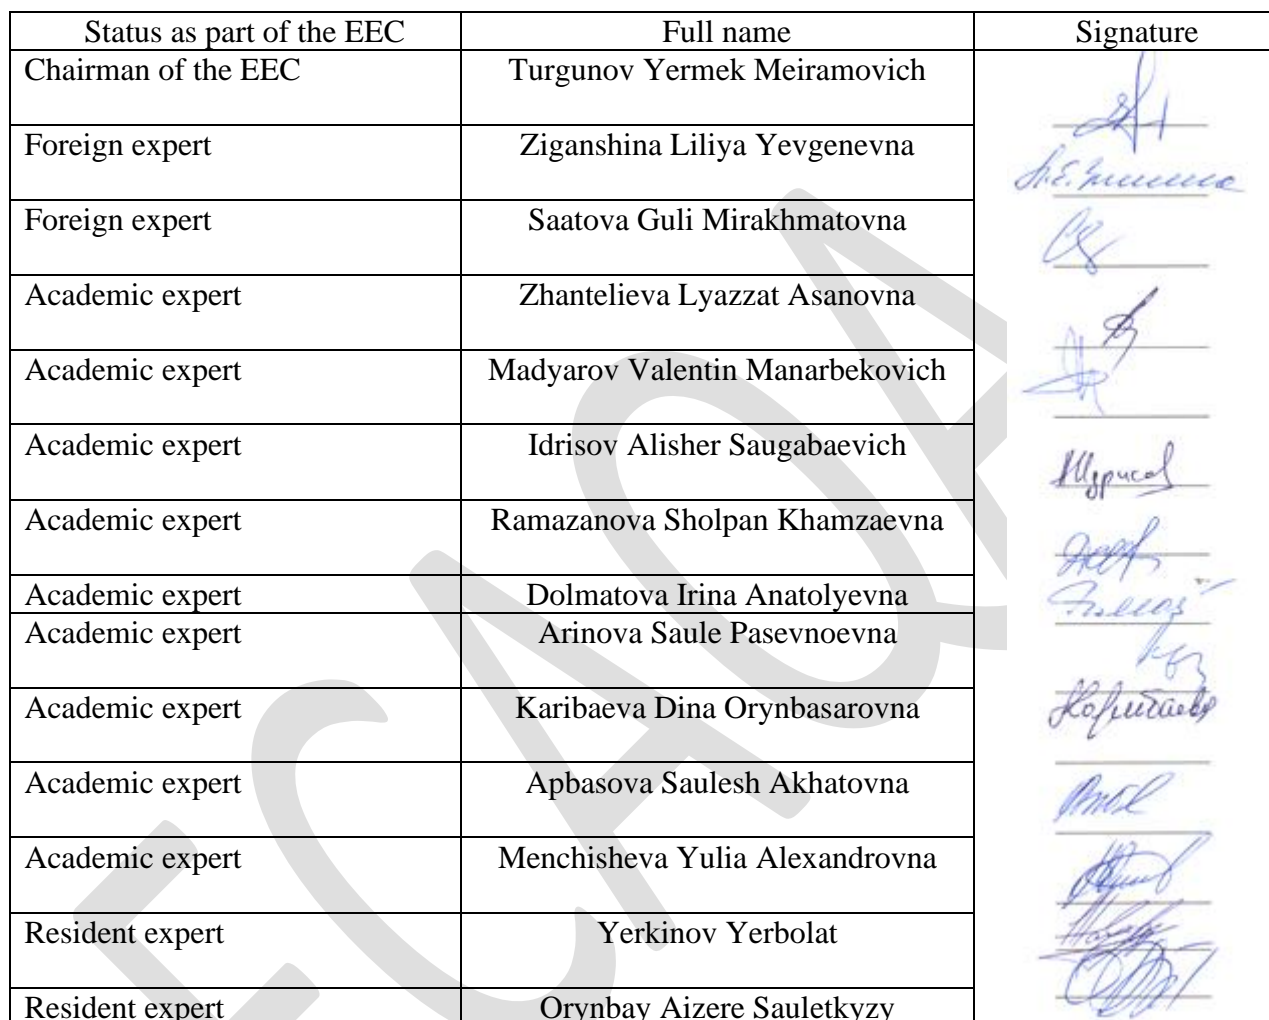 Status as part of the EEC Full name Signature
Chairman of the EEC Turgunov Yermek Meiramovich
Foreign expert Ziganshina Liliya Yevgenevna
Foreign expert Saatova Guli Mirakhmatovna
Academic expert Zhantelieva Lyazzat Asanovna
Academic expert Madyarov Valentin Manarbekovich
Academic expert Idrisov Alisher Saugabaevich
Academic expert Ramazanova Sholpan Khamzaevna
Academic expert Dolmatova Irina Anatolyevna
Academic expert Arinova Saule Pasevnoevna
Academic expert Karibaeva Dina Orynbasarovna
Academic expert Apbasova Saulesh Akhatovna
Academic expert Menchisheva Yulia Alexandrovna
Resident expert Yerkinov Yerbolat
Resident expert Orynbay Aizere Sauletkyzy
ECAQA